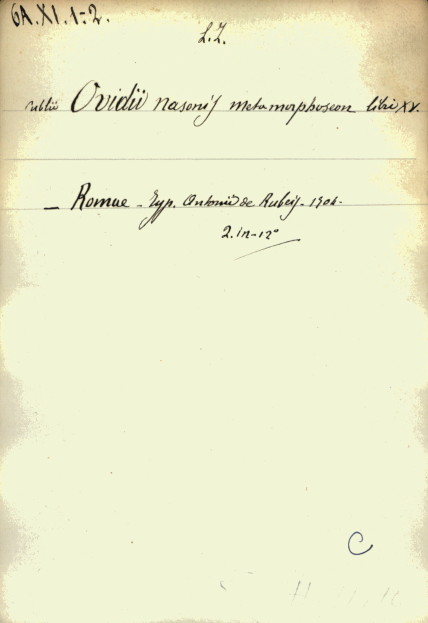 6A.XI.1-2.
L.Z.
Publii Ovidii nasonis metamorphoseon libri XV.
_ Romae - Typ. Antonii de Rubeis - 1704-
2. in-12°
C